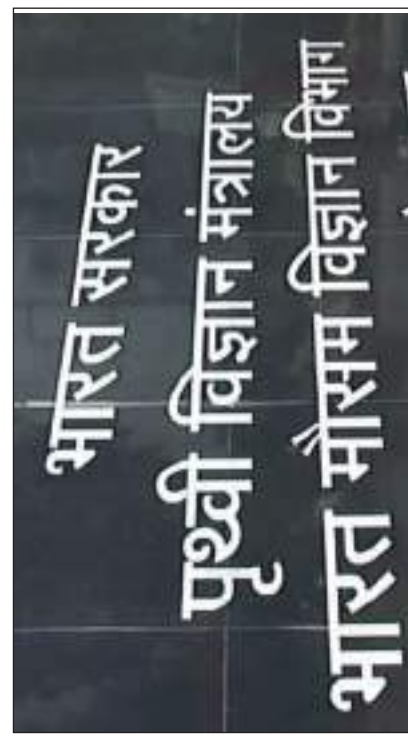 भारत सरकार
पृथ्वी विज्ञान मंत्रालय
भारत मौसम विज्ञान विभाग